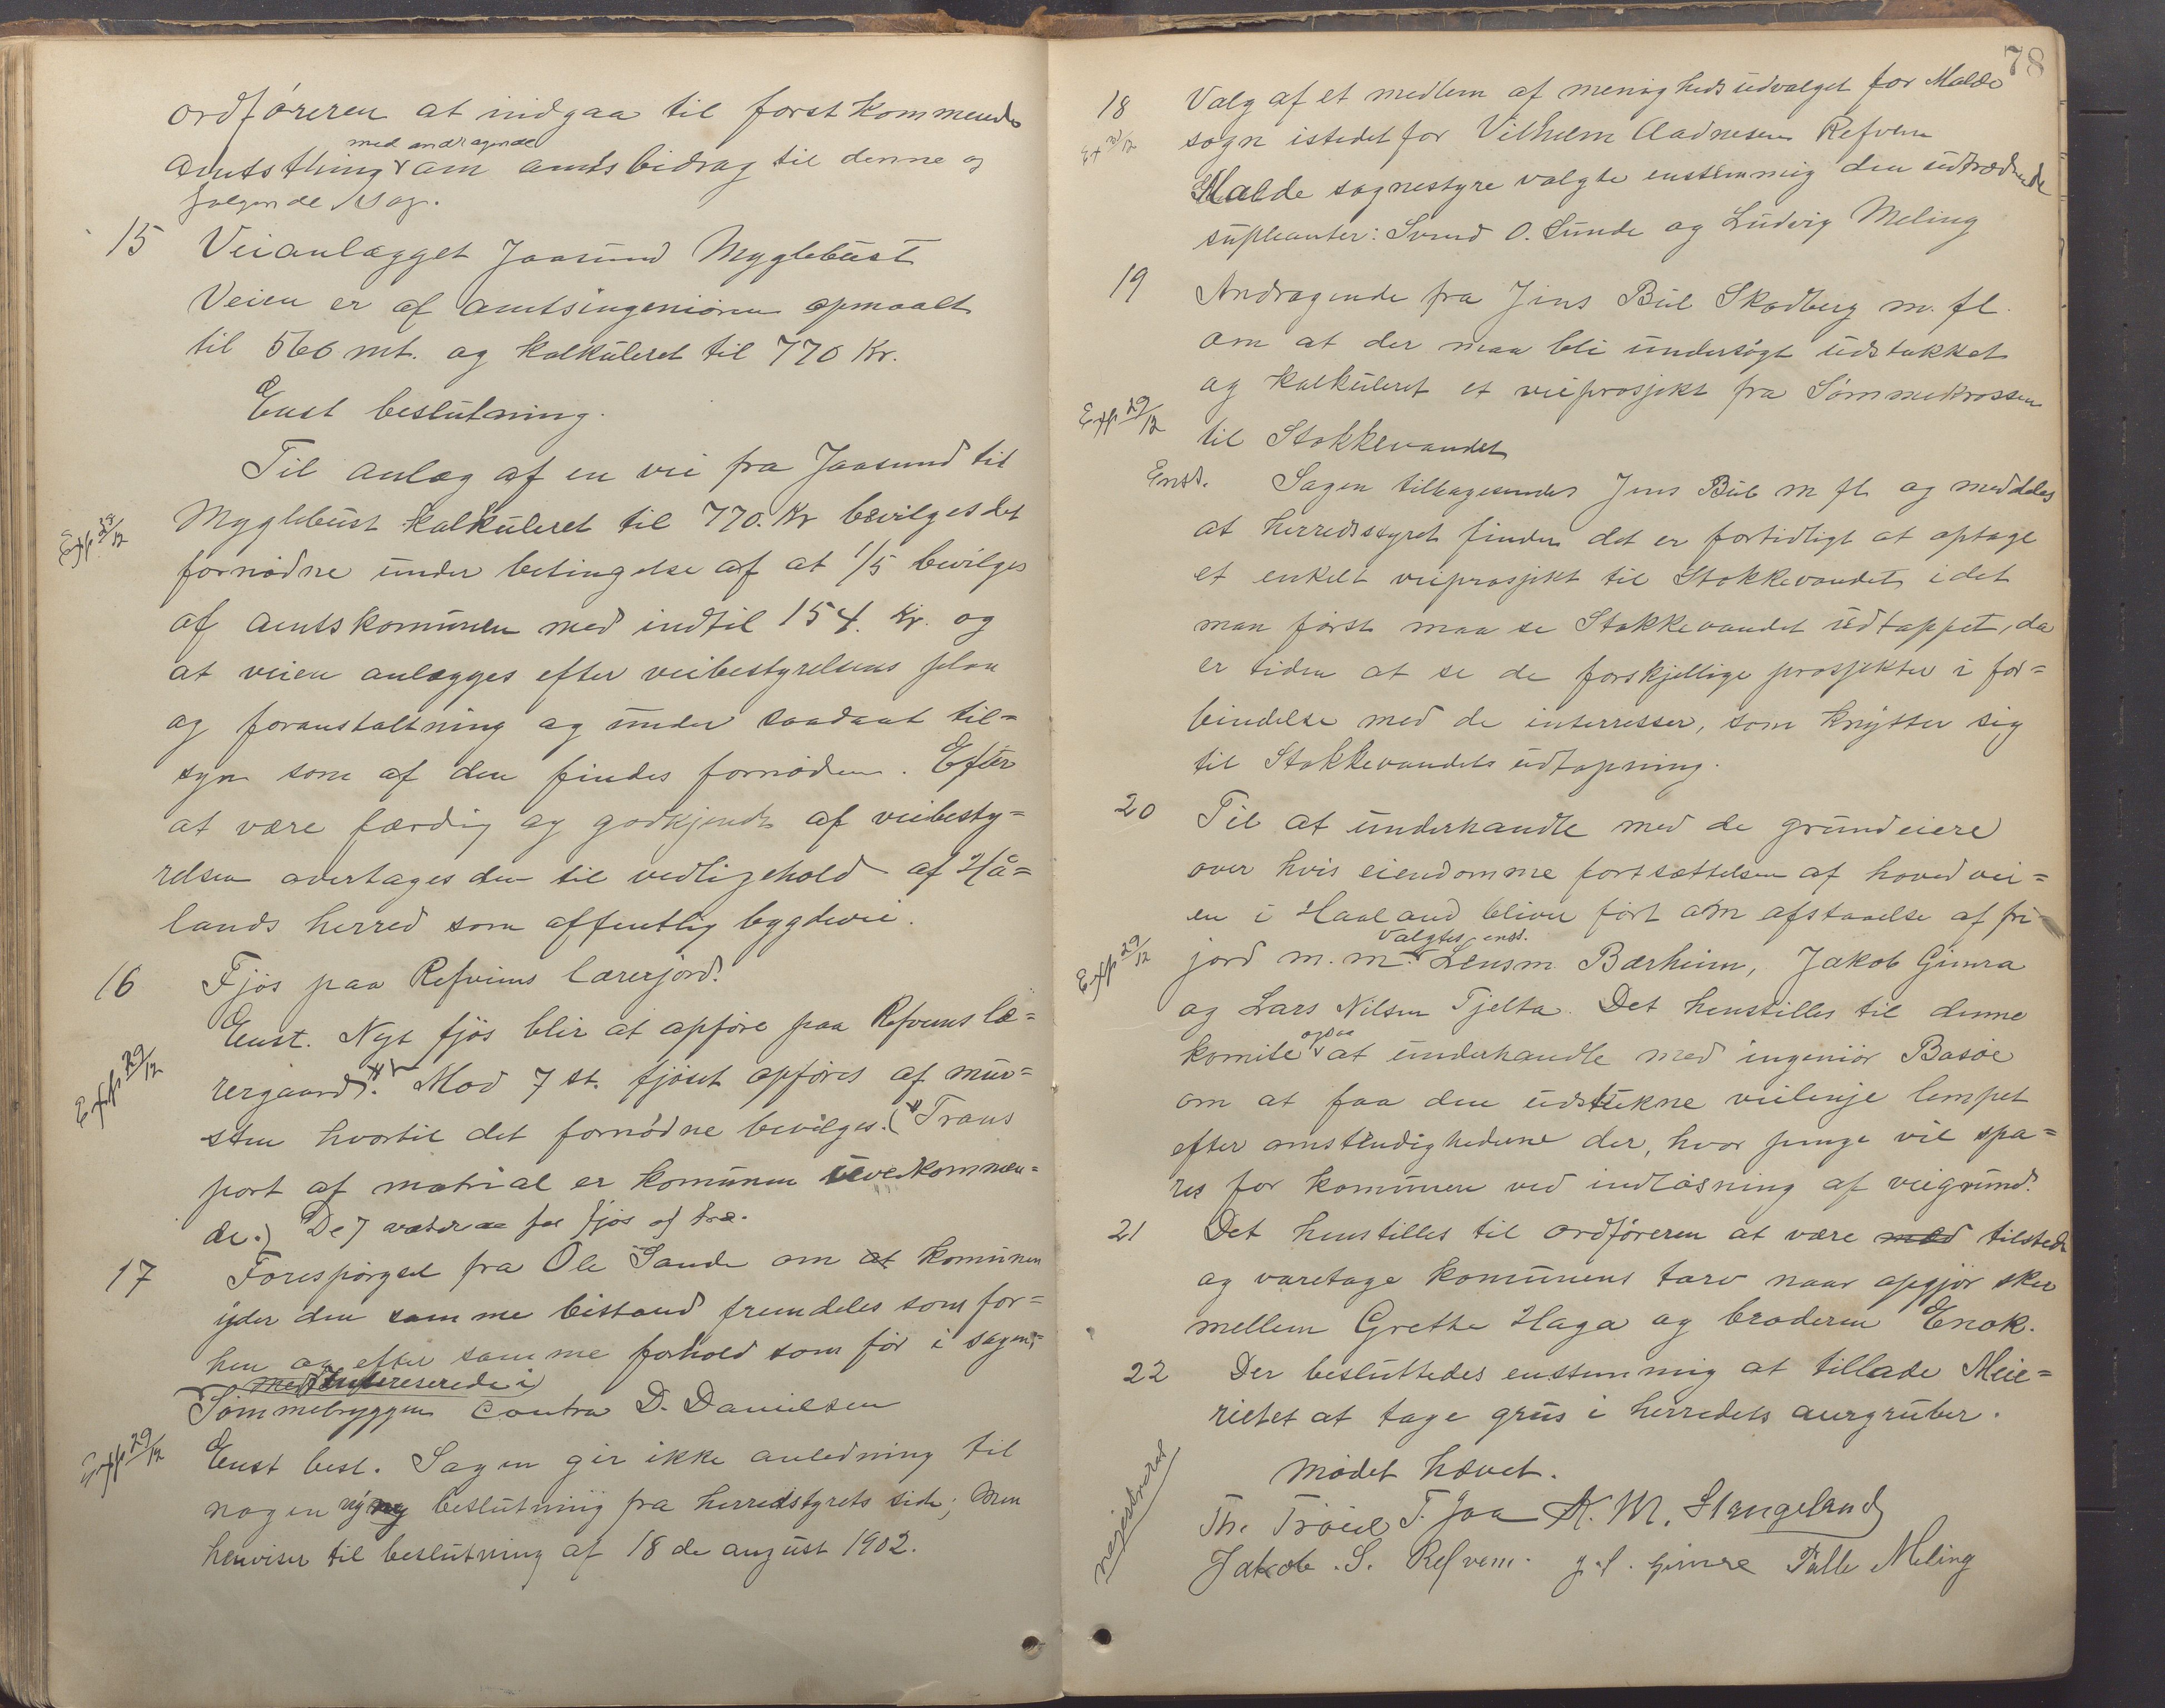 ordføreren at indgaa til først kommende
med andragende
amtsthing om amtsbidrag til denne og
følgende sag.
15 Veianlægget Jaasund Myglebust
Veien er af amtsingeniøren opmaalt
til 560 mt. og kalkuleret til 770 Kr.
Enst beslutning.
Til anlæg af en vei fra Jaasund til
Myglebust kalkuleret til 770. Kr bevilges det
Exp 29/12
fornødne under betingelse af at 1/5 bevilges
af amtskomunen med indtil 154. Kr. og
at veien anlægges efter veibestyrelsens plan
og foranstaltning og under saadant til=
syn som af den findes fornøden. Efter
at være færdig og godkjendt af veibesty=
relsen overtages den til vedligehold af Hå=
lands herred som offentlig bygdevei.
16 Fjøs paa Refvims lærerjord.
Enst. Nyt fjøs blir at opføre paa Refvems læ=
Exp 29/12
rergaard. Mod 7 st. fjøset opføres af mur=
sten hvortil det fornødne bevilges. (Trans
port af matrial er komunen uvedkommen=
de.) De 7 votere for fjøs af træ.
17 Forespørgsel fra Ole Sande om at komunen
yder den samme bistand fremdeles som for=
hen og efter samme forhold som før i sagen:
med Intereserede i
Sømmebryggen contra D. Danielsen
Exp 29/12
Enst besl. Sagen gir ikke anledning til
nogen ny beslutning fra herredstyrets side; men
henviser til beslutning af 18 de august 1902.
78
18 Valg af et medlem af menighedsudvalget for Malde
Ex 29/12
sogn istedet for Vilhelm Aadnesen Refvem
Malde sognestyre valgte enstemmig den udtrædende
supleanter: Svend O. Sunde og Ludvig Meling
19 Andragende fra Jens Bul Skadberg m. fl.
om at der maa bli undersøgt udstukket
og kalkuleret et veiprosjekt fra Sømmekrossen
Exp 29/12
til Stokkevandet
Enst. Sagen tilbagesendes Jens Bul m fl og meddeles
at herredsstyret finder det er fortidligt at optage
et enkelt veiprosjekt til Stokkevandet idet
man først maa se Stokkevandet udtappet, da
er tiden at se de forskjellige prosjekter i for=
bindelse med de interresser, som knytter sig
til Stokkevandets udtapning.
20 Til at underhandle med de grundeiere
over hvis eiendomme fortsættelsen af hovedvei=
en i Haaland bliver ført om afstaaelse af fri
valgtes enst.
Exp 29/12
jord m. m. Lensm. Bærheim, Jakob Gimra
og Lars Nilsen Tjelta. Det henstilles til denne
ogsaa
komite at underhandle med ingeniør Basøe
om at faa den udstukne veilenje lempet
efter omstendighederne der, hvor penge vil spa=
res for komunen ved indløsning af veigrund.
21 Det henstilles til ordføreren at være med tilstede
og varetage komunens tarv naar opgjør sker
mellem Grethe Haga og broderen Enok.
22 Der besluttedes enstemmig at tillade Meie=
rietet at tage grus i herredets aurgruber.
Mødet hævet.
registreret
Th. Trøiel T. Jaa K. M. Stangeland
Jakob S. Refvem. J. J. Gimre Tølle Meling